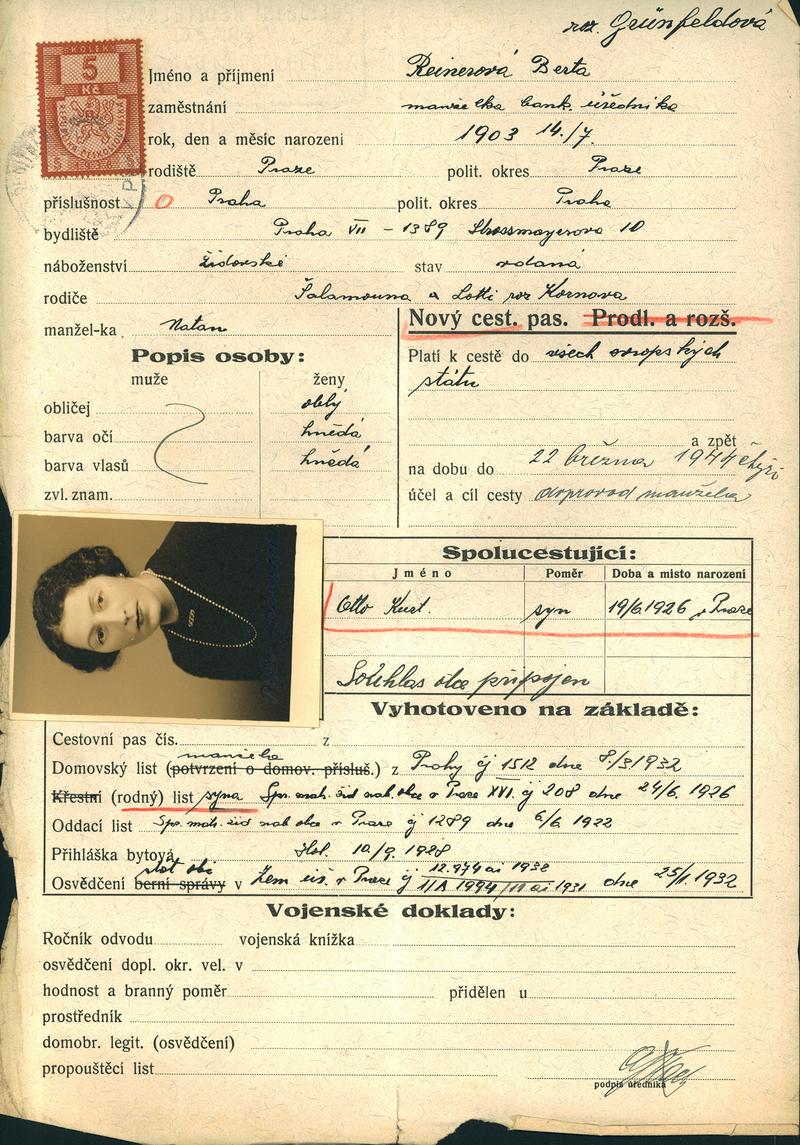 roz. Grünfeldová
KOLEK
5
Kč
Jméno a příjmení Reinerová Berta
zaměstnání manželka bank. úředníka
rok, den a měsíc narození 1903 14./7.
rodiště Praze polit. okres Praze
příslušnost Praha polit. okres Praha
bydliště Praha VII – 1389 Strossmayerovo 10
náboženství židovské stav vdaná
rodiče Šalamouna a Lotti roz Kornova
manžel-ka Natan
Nový cest. pas. Prodl. a rozš.
Popis osoby:
Platí k cestě do všech evropských
muže ženy
států
obličej oblý
barva očí hnědá
barva vlasů hnědá
a zpět
na dobu do 22 března 1944 čtyři
zvl. znam.
účel a cíl cesty doprovod manžela
Spolucestující:
Jméno Poměr Doba a místo narození
Otto Kurt. syn 19/6.1926 v Praze
Souhlas otce připojen
Vyhotoveno na základě:
Cestovní pas čís. z
manžela
Domovský list (potvrzení o domov. přísluš.) z Prahy čj 1512 dne 8./3 1932
Křestní (rodný) list syna Spr. mah. žid náb. obce v Praze XVI. čj 208 dne 24/6. 1926
Oddací list Spr. mah. žid náb obce v Praze čj 1289 dne 6/6. 1922
Přihláška bytová Hol. 10/9. 1928
stát obč
12.974 ai 1932
Osvědčení berní správy v Zem úř. v Praze čj 11A 1994/11 ai 1931 dne 25/1. 1932
Vojenské doklady:
Ročník odvodu vojenská knížka
osvědčení dopl. okr. vel. v
hodnost a branný poměr přidělen u
prostředník
domobr. legit. (osvědčení)
propouštěcí list
podpis úředníka